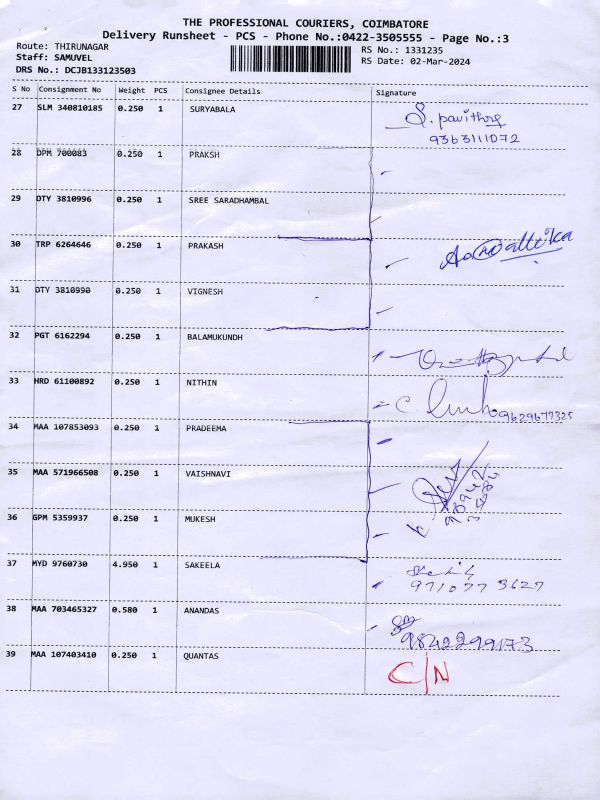 THE PROFESSIONAL COURIERS, COIMBATORE
Delivery Runsheet - PCS - Phone No.:0422-3505555 - Page No.:3
Route: THIRUNAGAR
Staff: SAMUVEL
DRS No.: DCJB133123503
RS No.: 1331235
RS Date: 02-Mar-2024
S No Consignment No Weight PCS Consignee Details Signature
27 SLM 340810185 0.250 1 SURYABALA
S. pavithra
9363111072
28 DPM 700083 0.250 1 PRAKSH
29 DTY 3810996 0.250 1 SREE SARADHAMBAL
30 TRP 6264646 0.250 1 PRAKASH
31 DTY 3810990 0.250 1 VIGNESH
32 PGT 6162294 0.250 1 BALAMUKUNDH
33 HRD 61100892 0.250 1 NITHIN
9629677325
34 MAA 107853093 0.250 1 PRADEEMA
35 MAA 571966508 0.250 1 VAISHNAVI
36 GPM 5359937 0.250 1 MUKESH
37 MYD 9760730 4.950 1 SAKEELA
971077 3627
38 MAA 703465327 0.580 1 ANANDAS
9842299173
39 MAA 107403410 0.250 1 QUANTAS
C/N